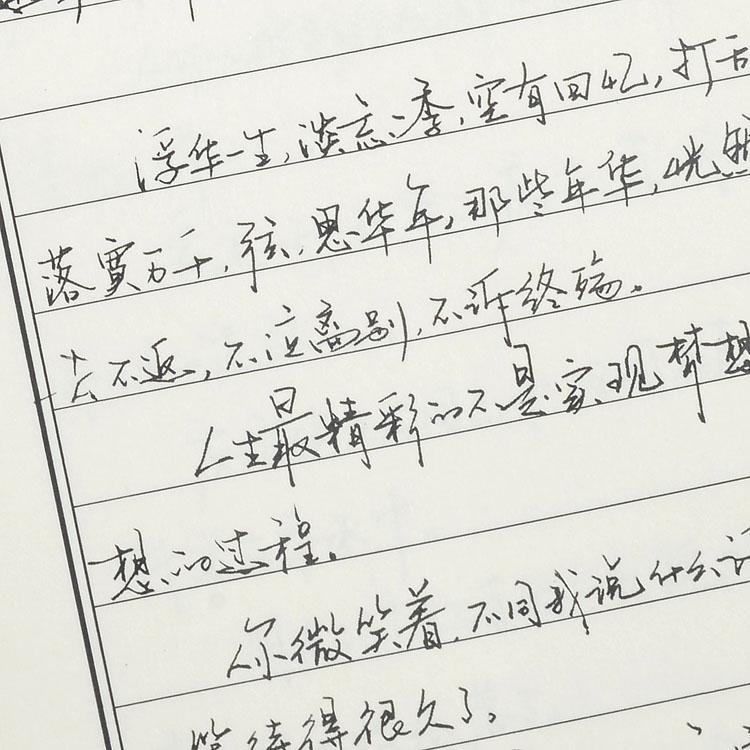 浮华一生,淡忘一季,空有回忆,打乱
落寞万千,弦,思华年,那些年华,恍然
去不返,不泣离别,不诉终殇。
人生最精彩的不是实现梦想
想的过程。
你微笑着,不同我说什么话
等待得很久了。